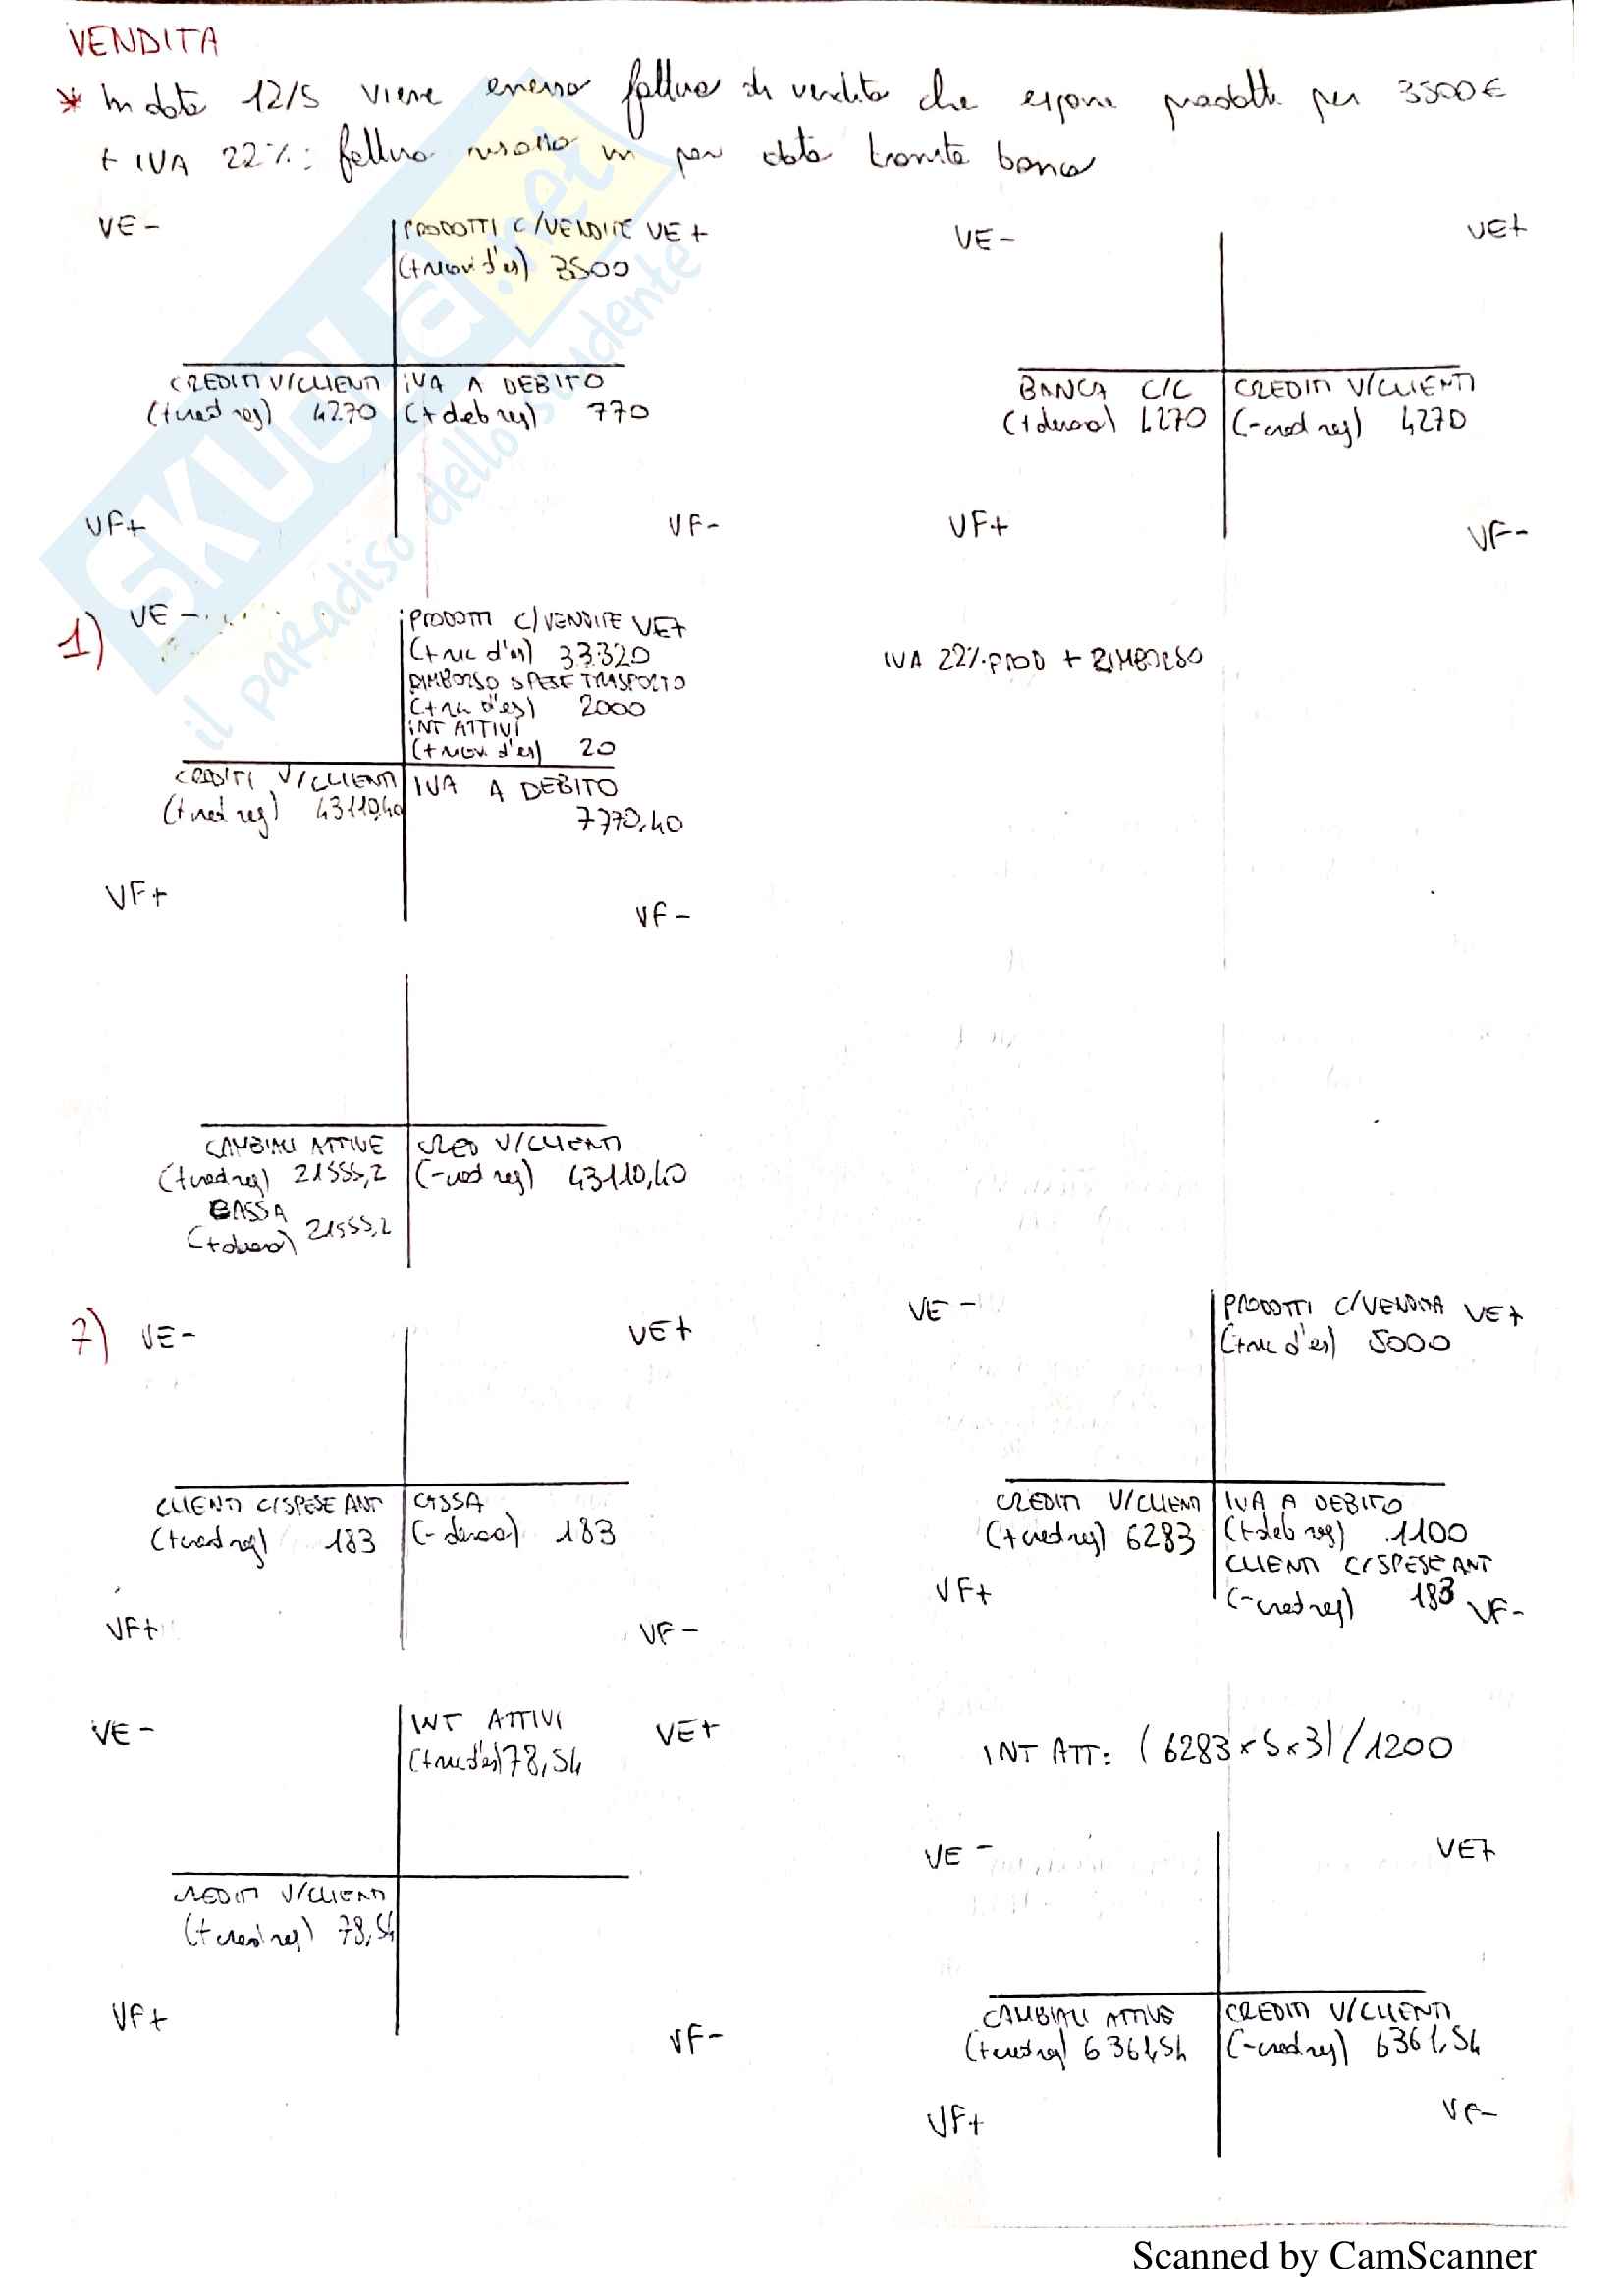 VENDITA
* In data 12/5 viene emessa fattura di vendita che espone prodotti per 3500€
+ IVA 22%: fattura riscossa in pari data tramite banca
VE - PRODOTTI C/VENDITE VE +
(+ricavi d'es) 3500
CREDITI V/CLIENTI IVA A DEBITO
(+cred reg) 4270 (+deb reg) 770
VF+ VF-
VE - VE+
BANCA C/C CREDITI V/CLIENTI
(+denaro) 4270 (-cred reg) 4270
VF+ VF-
SKUOLA.net
il paradiso dello studente
1) VE - PRODOTTI C/VENDITE VE+
(+ric d'es) 33.320
RIMBORSO SPESE TRASPORTO
(+ric d'es) 2000
INT ATTIVI
(+ricav. d'es) 20
CREDITI V/CLIENTI IVA A DEBITO
(+cred reg) 43110,40 7770,40
VF+ VF-
IVA 22% PROD + RIMBORSO
CAMBIALI ATTIVE CRED V/CLIENTI
(+cred reg) 21555,2 (-cred reg) 43110,40
CASSA
(+denaro) 21555,2
7) VE - VE+
CLIENTI C/SPESE ANT CASSA
(+cred reg) 183 (-denaro) 183
VF+ VF-
VE - PRODOTTI C/VENDITA VE+
(+ric d'es) 5000
CREDITI V/CLIENTI IVA A DEBITO
(+cred reg) 6283 (+deb reg) 1100
CLIENTI C/SPESE ANT
VF+ (-cred reg) 183 VF-
VE - INT ATTIVI VE+
(+ric d'es) 78,54
CREDITI V/CLIENTI
(+cred reg) 78,54
VF+ VF-
INT ATT: (6283 x 5 x 3) / 1200
VE - VE+
CAMBIALI ATTIVE CREDITI V/CLIENTI
(+cred reg) 6361,54 (-cred reg) 6361,54
VF+ VF-
Scanned by CamScanner